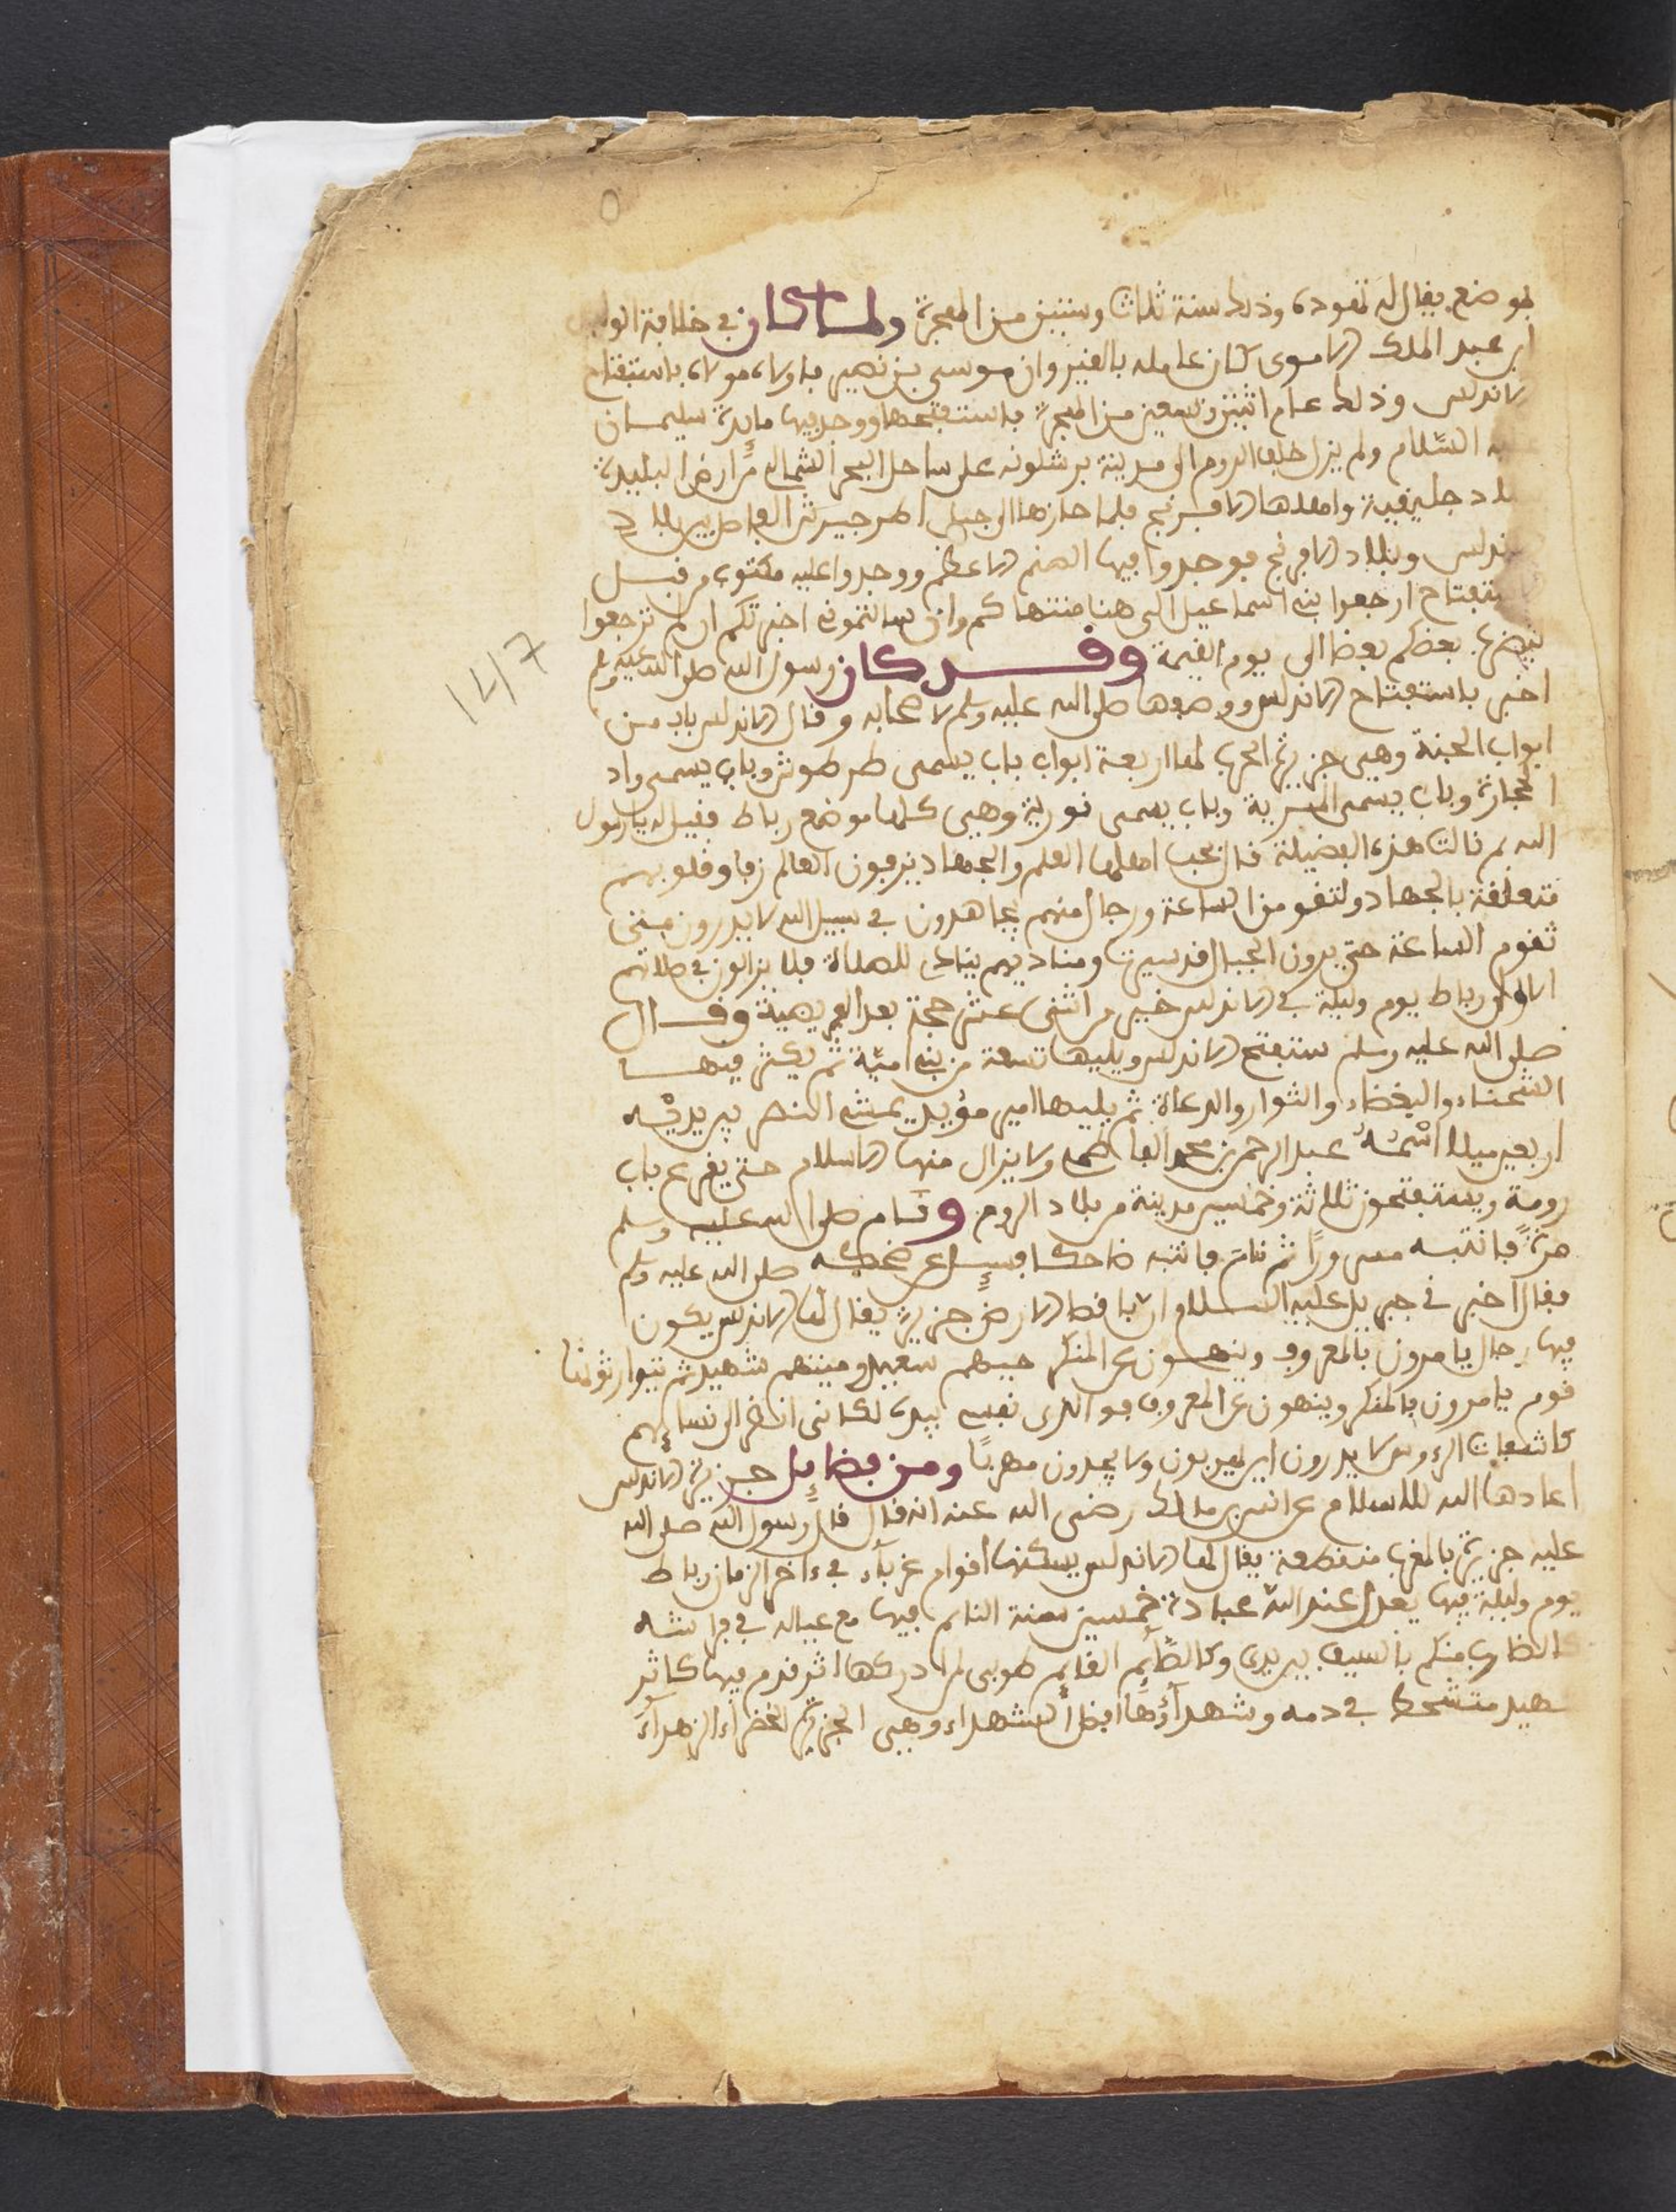 بموضع يقال له تهودة وذلك سنة ثلاث وستين من الهجرة ولما كان في خلافة الوليد
ابن عبد الملك الاموى كان عامله بالقيروان موسى بن نصير باولاه مولاه باستفتاح
الاندلس وذلك عام اثنين وتسعين من الهجرة باستفتحها ووجد فيها مايدة سليمان
عليه السلام ولم يزل خلف الروم الى مدينة برشلونه على ساحل البحر الشمالي من ارض البليدة
بلاد جليقية واهلها الافرنج فلما جازها الى جبل الفاصل بين بلاد
الاندلس وبلاد الافرنج فوجدوا فيها الصنم الاعظم ووجدوا عليه مكتوب من قبل
الاستفتاح ارجعوا بني اسماعيل الى هنا منتهاكم وان سالتموني اخبرتكم ان لم ترجعوا
ليضرب بعضكم بعضا الى يوم القيمة وقد كان رسول الله صلى الله عليه وسلم
اخبر باستفتاح الاندلس ووصفها صلى الله عليه وسلم لاصحابه وقال الاندلس باب من
ابواب الجنة وهي جزيرة الغرب لها اربعة ابواب باب يسمى طرطوشة وباب يسمى واد
الحجارة وباب يسمى المرية وباب يسمى قورية وهي كلها موضع رباط فقيل له يا رسول
الله بم نالت هذه الفضيلة قال بحب اهلها العلم والجهاد يزفون العالم زفا وقلوبهم
متعلقة بالجهاد ولتقومن الساعة ورجال منهم يجاهدون في سبيل الله لا يدرون متى
تقوم الساعة حتى يرون الجبال قد سيرت ومناديهم ينادي للصلاة فلا يزالون في صلاتهم
الا وان رباط يوم وليلة في الاندلس خير من اثنى عشر حجة بعد الفريضة وقال
صلى الله عليه وسلم ستفتح الاندلس ويليها تسعة من بني امية ثم يكثر فيها
الشحناء والبغضاء والثوار والدعاة ثم يليها امير مؤيد يمشي النصر بين يديه
اربعين ميلا اسمه عبد الرحمن بن محمد الفاطمي ولا يزال منها الاسلام حتى يقرع باب
رومة ويستفتحون ثلاثة وخمسين مدينة من بلاد الروم وقام صلى الله عليه وسلم
مرة فانتبه مسرورا ثم نام فانتبه ضاحكا فسيل عن ضحكه صلى الله عليه وسلم
فقال اخبرني جبريل عليه السلام ان باقصا الارض جزيرة يقال لها الاندلس يكون
فيها رجال يامرون بالمعروف وينهون عن المنكر حيهم سعيد وميتهم شهيد ثم يتوارثونها
قوم يامرون بالمنكر وينهون عن المعروف فو الذى نفسي بيده لكانى انظر الى نسايهم
كاشفات الرءوس لا يدرون اين يهربون ولا يجدون مهربًا ومن فضايل جزيرة الاندلس
اعادها الله للاسلام عن انس بن مالك رضى الله عنه انه قال قال رسول الله صلى الله
عليه جزيرة بالمغرب منقطعة يقال لها الاندلس يسكنها اقوام غرباء في ءاخر الزمان رباط
يوم وليلة فيها يعدل عند الله عبادة خمسين سنة النايم فيها مع عياله في فراشه
كالضارب منكم بالسيف بين يدي وكالصايم القايم طوبى لمن ادركها اثر قدم فيها كاثر
شهيد متشحط في دمه وشهداؤها افضل الشهداء وهي الجزيرة الخضراء الزهراء